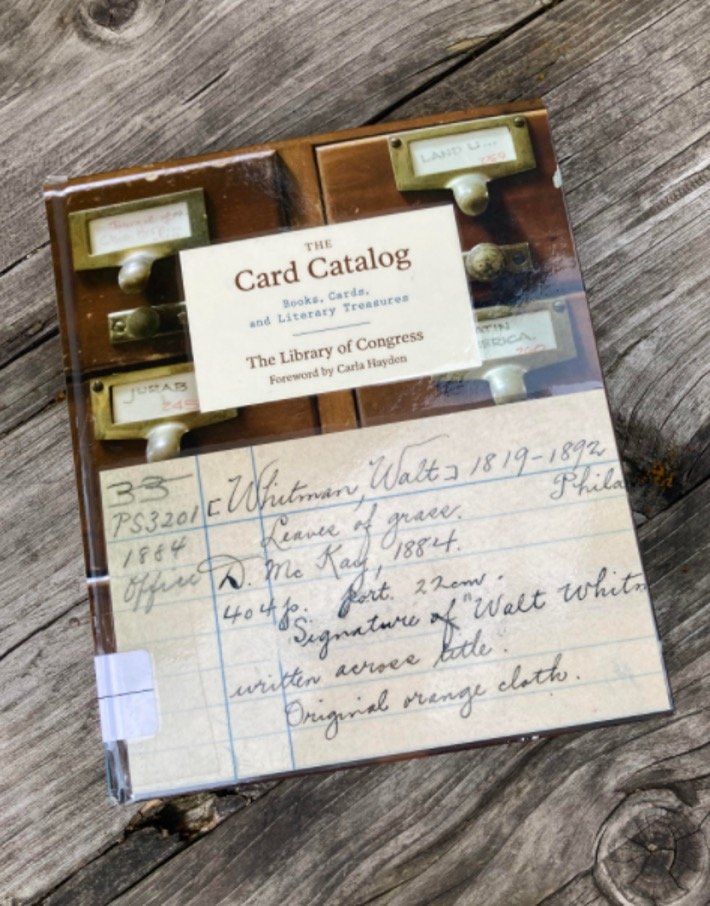 LAND U...
THE
Card Catalog
Books, Cards,
and Literary Treasures
The Library of Congress
Foreword by Carla Hayden
ATIN
ERICA.
JUZAB
245
33
PS3201
1884
Office
[Whitman, Walt] 1819-1892
Leaves of grass. Phila
D. McKay, 1884.
404p. port. 22cm.
Signature of "Walt Whitm
written across title.
Original orange cloth.